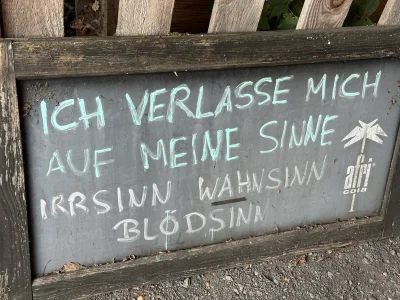 ICH VERLASSE MICH
AUF MEINE SINNE
IRRSINN WAHNSINN
BLÖDSINN
afri
cola